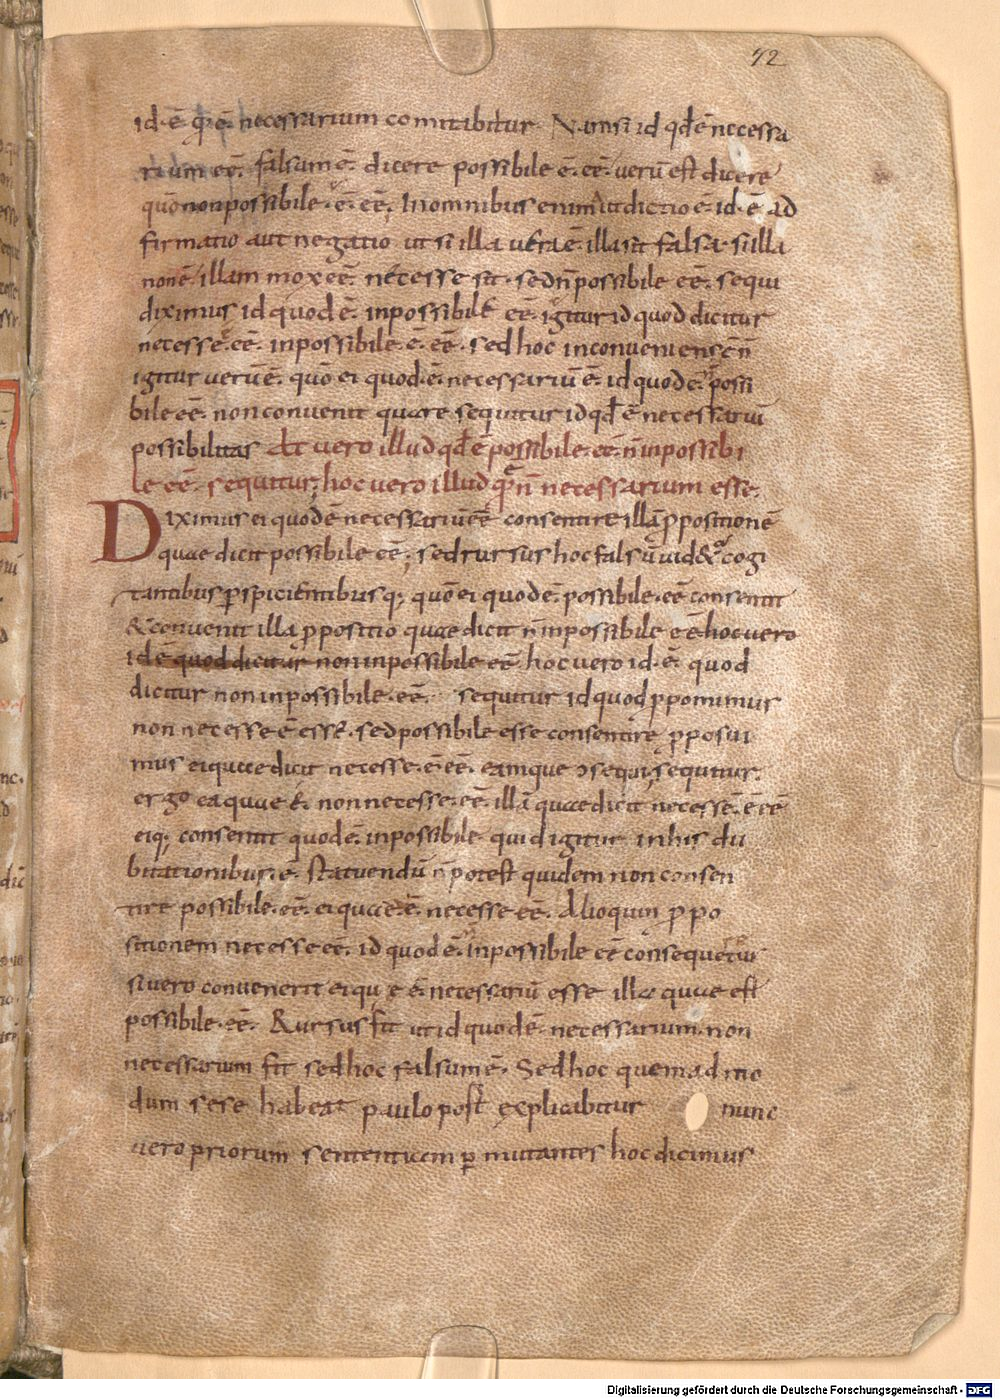 72
id·ē· qđ·ē· necessarium comitabitur· Nam si id qđ ē necessa
rium eē· falsum ē· dicere possibile ē· eē· uerū est dicere
quō non possibile·ē·eē; In omnibus enim aut dictio ē· id·ē· ad
firmatio aut negatio ut si illa uera ē· illa sit falsa· si illa
non ē· illam mox eē· necesse sit· sed n̄ possibile eē· sequi
diximus id quod ē· inpossibile eē· igitur id quod dicitur
necesse·eē· inpossibile·ē·eē· sed hoc inconueniens ē n̄
igitur uerū ē· quō ei quod·ē· necessariū ē· id quod ē· possi
bile eē· non conuenit quare sequitur id qđ ē necessariū
possibilitas At uero illud qđ ē possibile·eē· n̄ inpossibi
le eē· sequitur; hoc uero illud qđ n̄ necessarium esse·
Diximus ei quod ē necessariū eē consentire illā ꝓpositionē
quae dicit possibile eē; sed rursus hoc falsū uid& cogi
tantibus ꝑspicientibusq; quō ei quod ē· possibile·eē consentit
& conuenit illa ꝓpositio quae dicit n̄ inpossibile eē hoc uero
id ē quod dicitur non inpossibile eē hoc uero id·ē· quod
dicitur non inpossibile·eē· sequitur id quod ꝓponimus
non necesse ē esse· sed possibile esse consentire ꝓposui
mus ei quae dicit necesse·ē·eē· eamque ɔsequi; sequitur
ergo ea quae ē· non necesse·eē· illā quae dicit necesse·ē·eē
eiq; consentit quod ē· inpossibile quid igitur in his du
bitationibus·ē· Statuendū n̄ potest quidem non consen
tire possibile·eē· ei quae·ē· necesse·eē· Alioquin ꝓpo
sitionem necesse eē· id quod ē· inpossibile eē consequetur
si uero conuenerit ei quae ē· necessariū esse illa quae est
possibile·eē· Rursus fit ut id quod ē· necessarium· non
necessarium fit sed hoc falsum ē· Sed hoc quemadmo
dum sese habeat paulo post explicabitur nunc
uero priorum sententiam ꝑmutantes hoc dicimus
Digitalisierung gefördert durch die Deutsche Forschungsgemeinschaft - DFG